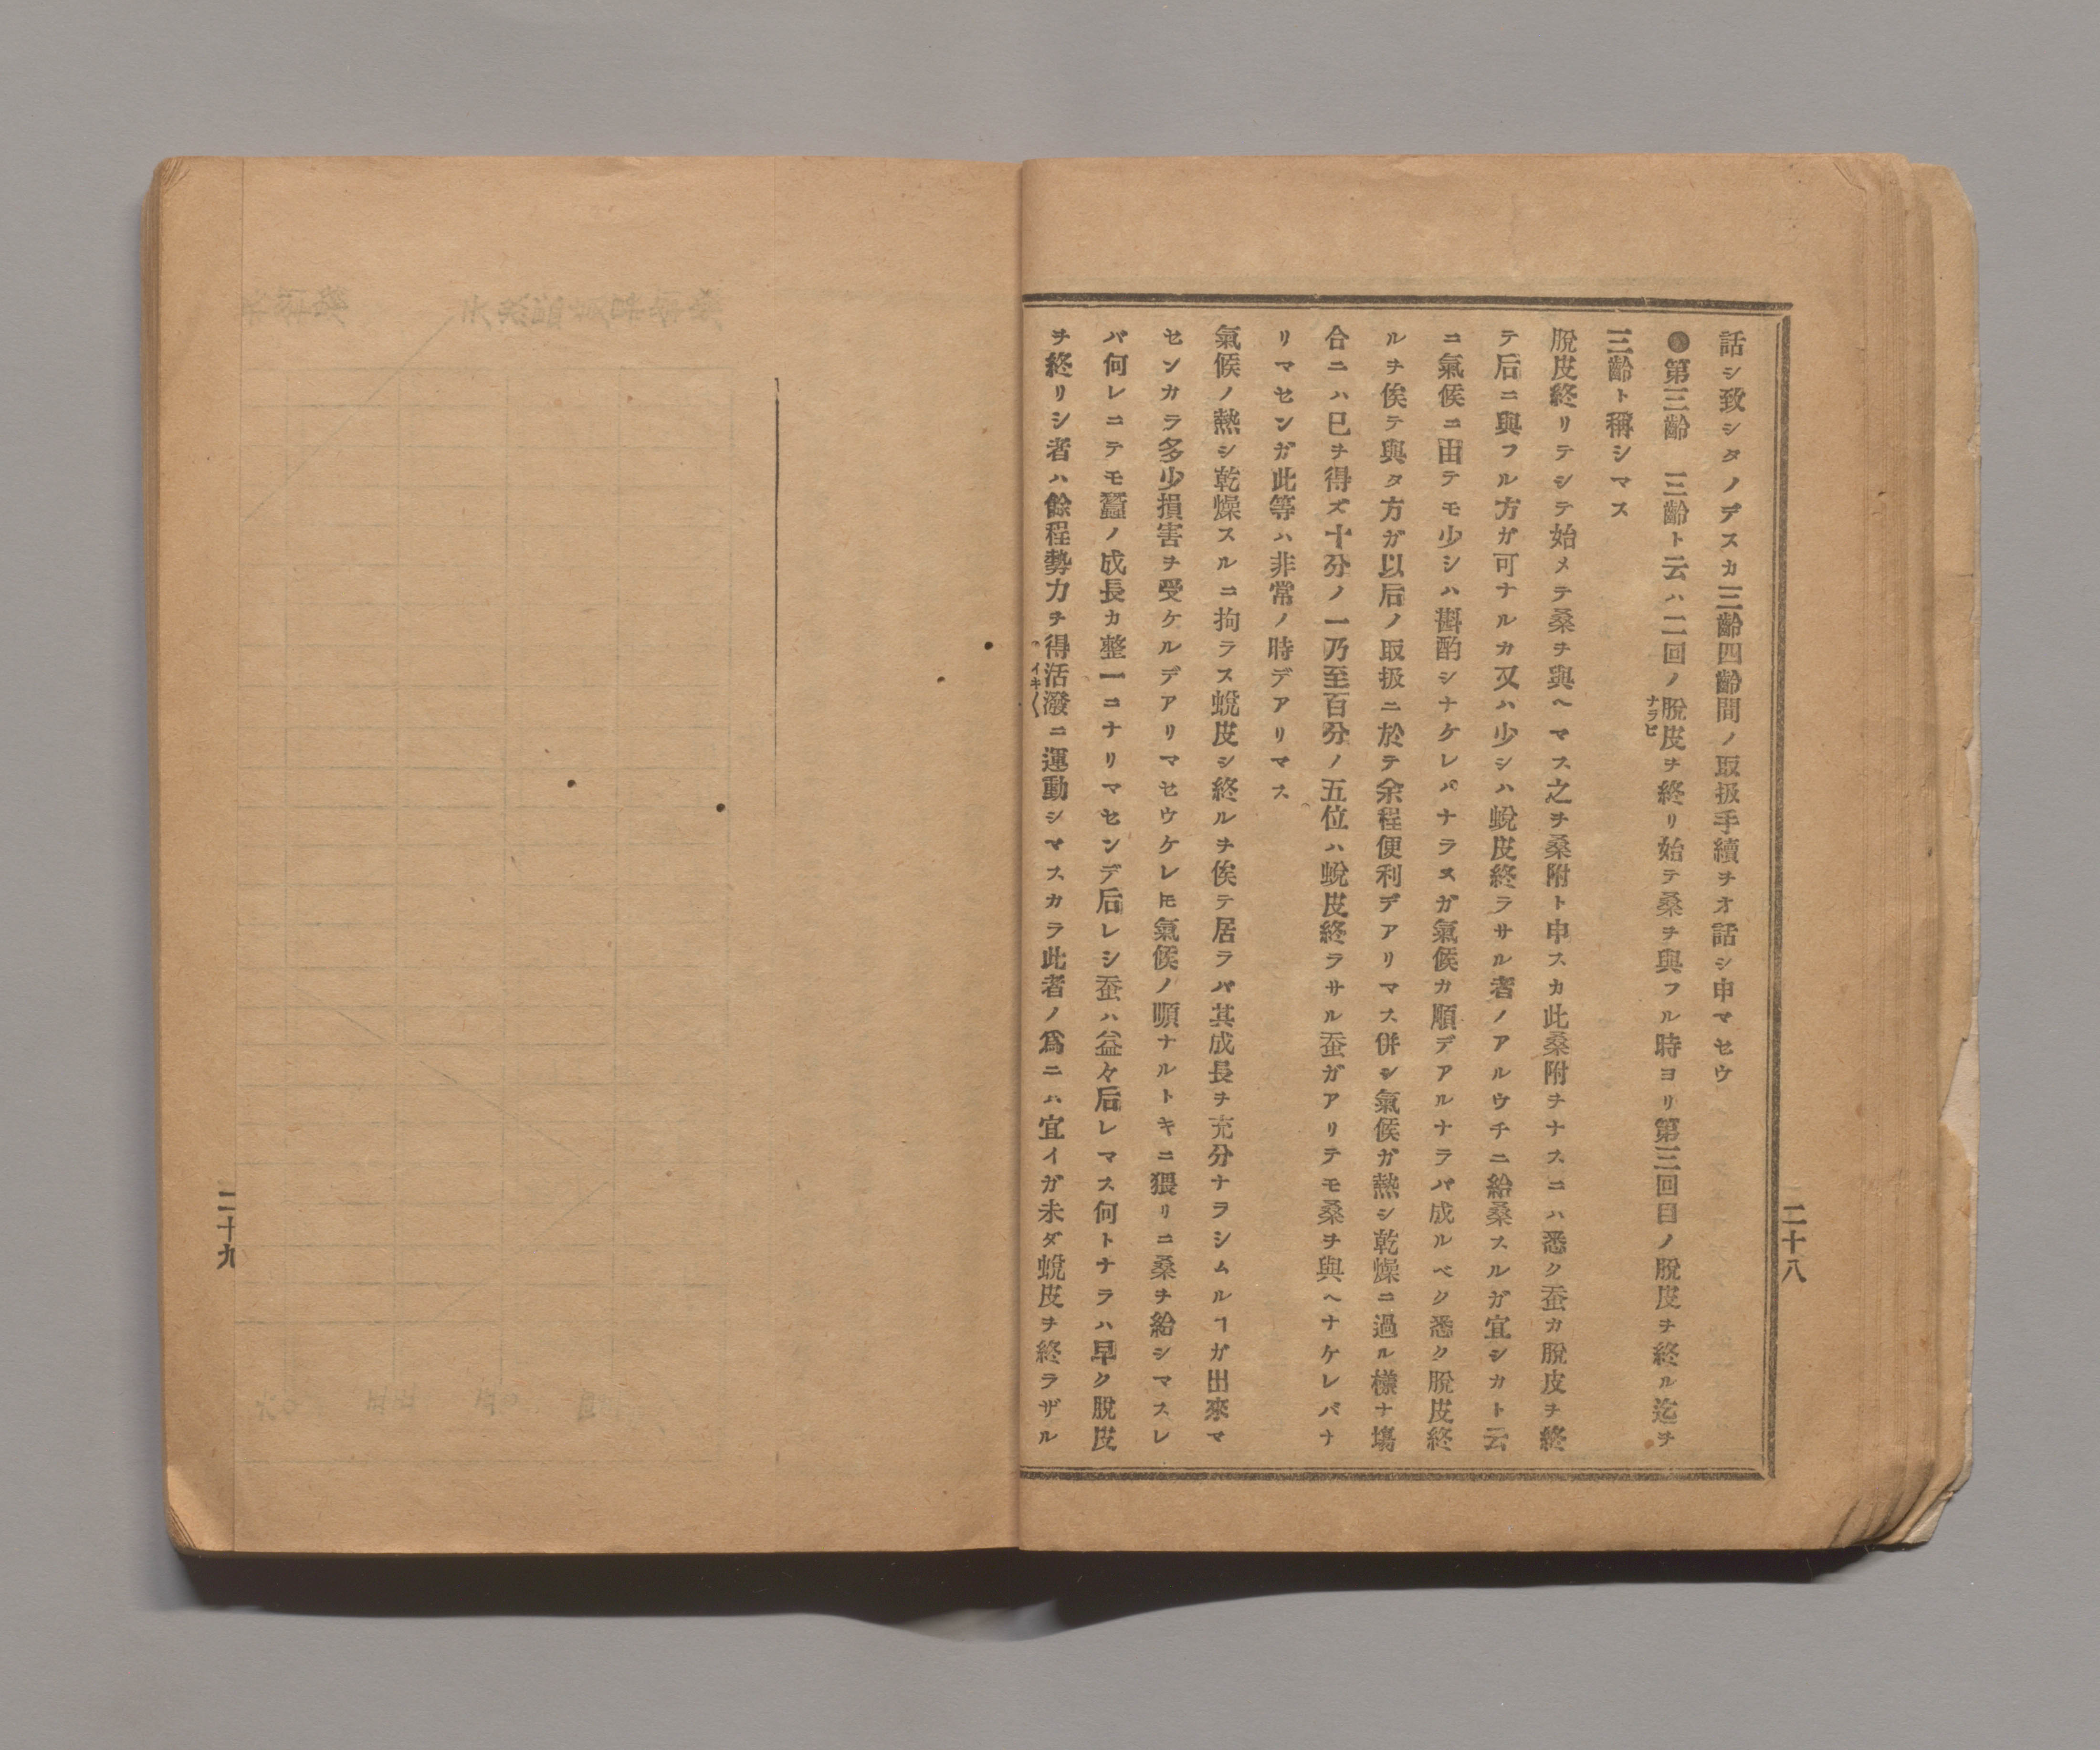 話シ致シタノデスカ三齡四齡間ノ取扱手續ヲオ話シ申マセウ
●第三齡　三齡ト云ハ二回ノ脫皮ヲ終リ始テ桑ヲ與フル時ヨリ第三回目ノ脫皮ヲ終ル迄ヲ
ナラビ
三齡ト稱シマス
脫皮終リテシテ始メテ桑ヲ與ヘマス之ヲ桑附ト申スカ此桑附ヲナスニハ悉ク蚕カ脫皮ヲ終
テ后ニ與フル方ガ可ナルカ又ハ少シハ蛻皮終ラサル者ノアルウチニ給桑スルガ宜シカト云
ニ氣候ニ由テモ少シハ斟酌シナケレバナラスガ氣候カ順デアルナラバ成ルベク悉ク脫皮終
ルヲ俟テ與タ方ガ以后ノ取扱ニ於テ余程便利デアリマス併シ氣候ガ熱シ乾燥ニ過ル樣ナ塲
合ニハ已ヲ得ズ十分ノ一乃至百分ノ五位ハ蛻皮終ラサル蚕ガアリテモ桑ヲ與ヘナケレバナ
リマセンガ此等ハ非常ノ時デアリマス
氣候ノ熱シ乾燥スルニ拘ラス蛻皮シ終ルヲ俟テ居ラバ其成長ヲ充分ナラシムルヿガ出來マ
センカラ多少損害ヲ受ケルデアリマセウケレ𪜈氣候ノ順ナルトキニ猥リニ桑ヲ給シマスレ
バ何レニテモ蠶ノ成長カ整一コナリマセンデ后レシ蚕ハ益々后レマス何トナラハ早ク脫皮
ヲ終リシ者ハ餘程勢力ヲ得活潑ニ運動シマスカラ此者ノ爲ニハ宜イガ未ダ蛻皮ヲ終ラザル
イキ〱
二十八
二十九